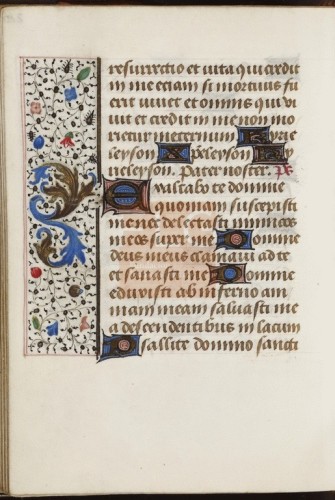 resurrectio et vita qui credit
in me eciam si mortuus fu
erit vivet et omnis qui vi
vit et credit in me non mo
rietur in eternum Kyrie
leyson Xpeleyson Ky
rieleyson. Pater noster. ps
Exaltabo te domine
quoniam suscepisti
me nec delectasti inimicos
meos super me Domine
deus meus clamavi ad te
et sanasti me Domine
eduxisti ab inferno ani
mam meam salvasti me
a descendentibus in lacum
Psallite domino sancti